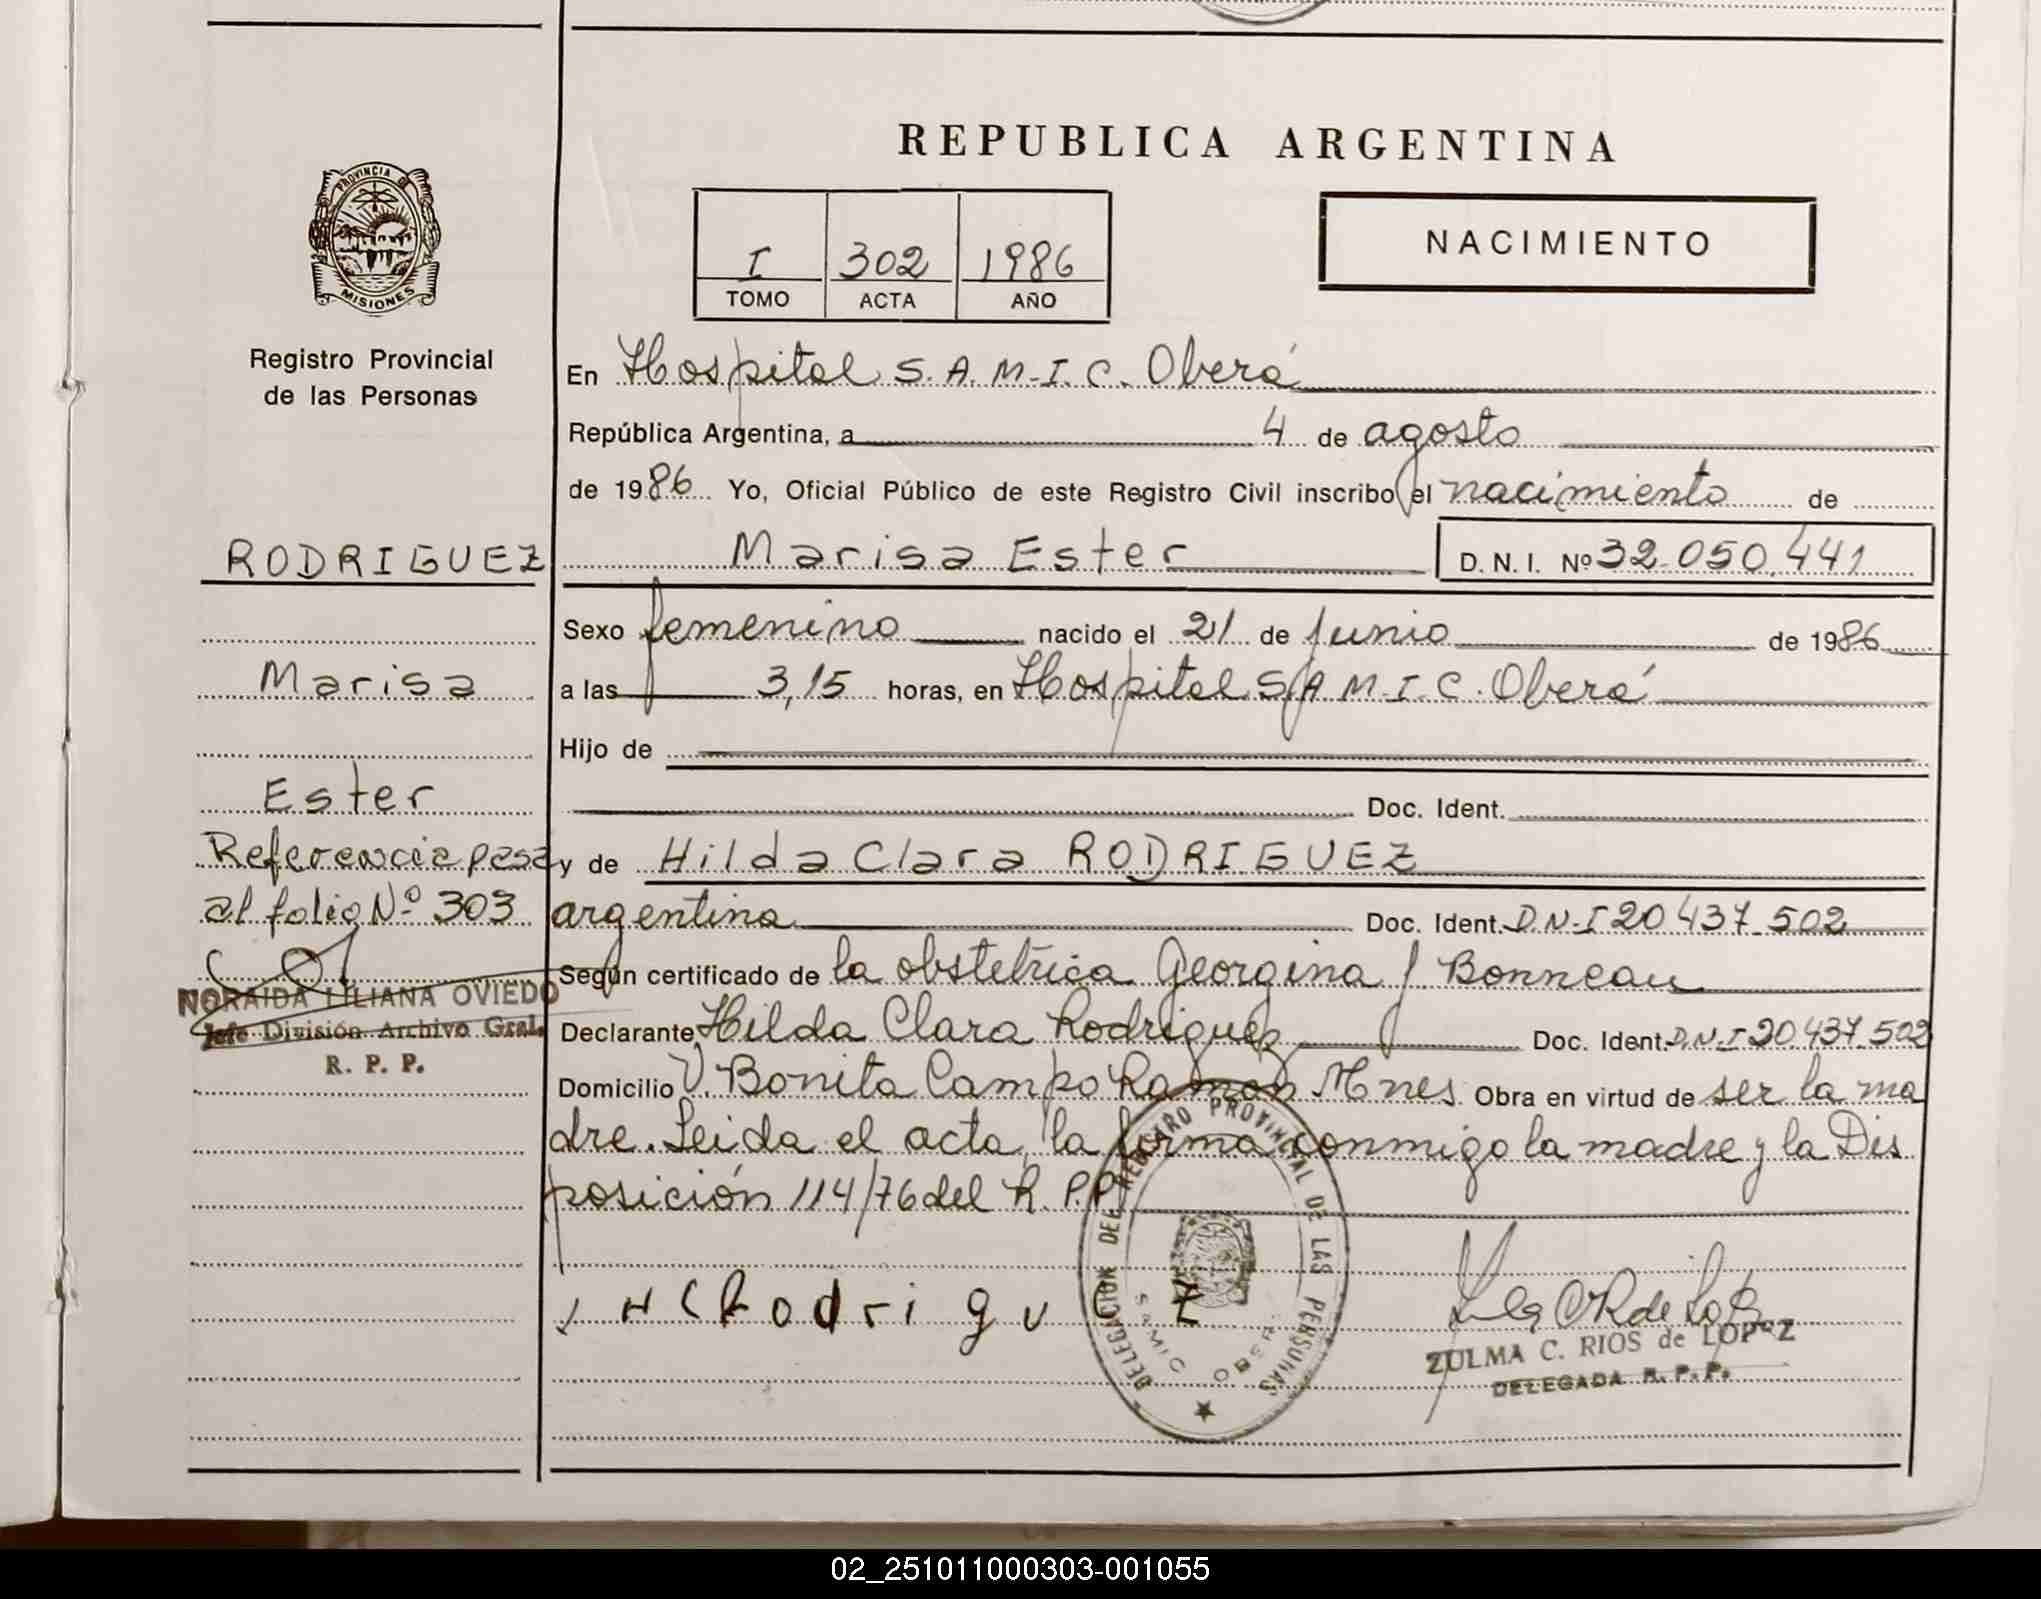 REPUBLICA ARGENTINA
PROVINCIA DE
MISIONES
Registro Provincial
de las Personas
I 302 1986
TOMO ACTA AÑO
NACIMIENTO
En Hospital S.A.M.I.C. Oberá
República Argentina, a 4 de agosto
de 1986 Yo, Oficial Público de este Registro Civil inscribo el nacimiento de
RODRIGUEZ Marisa Ester D.N.I. Nº 32.050.441
Sexo femenino nacido el 21 de junio de 1986
Marisa a las 3,15 horas, en Hospital S.A.M.I.C. Oberá
Hijo de
Ester Doc. Ident.
Referencia pasa y de Hilda Clara RODRIGUEZ
al folio Nº 303 argentina Doc. Ident. D.N.I 20.437.502
Según certificado de la obstetrica Georgina J Bonneau
NORAIDA LILIANA OVIEDO
Jefe División Archivo Gral.
R. P. P.
Declarante Hilda Clara Rodriguez Doc. Ident. D.N.I 20.437.502
Domicilio V. Bonita Campo Ramon Mnes. Obra en virtud de ser la ma
dre. Leida el acta, la firma conmigo la madre y la Dis
posición 114/76 del R.P.P.
H C Rodriguez
DELEGACION DEL REGISTRO PROVINCIAL DE LAS PERSONAS
SAMIC OBERA
ZULMA C. RIOS de LOPEZ
DELEGADA R. P. P.
02_251011000303-001055